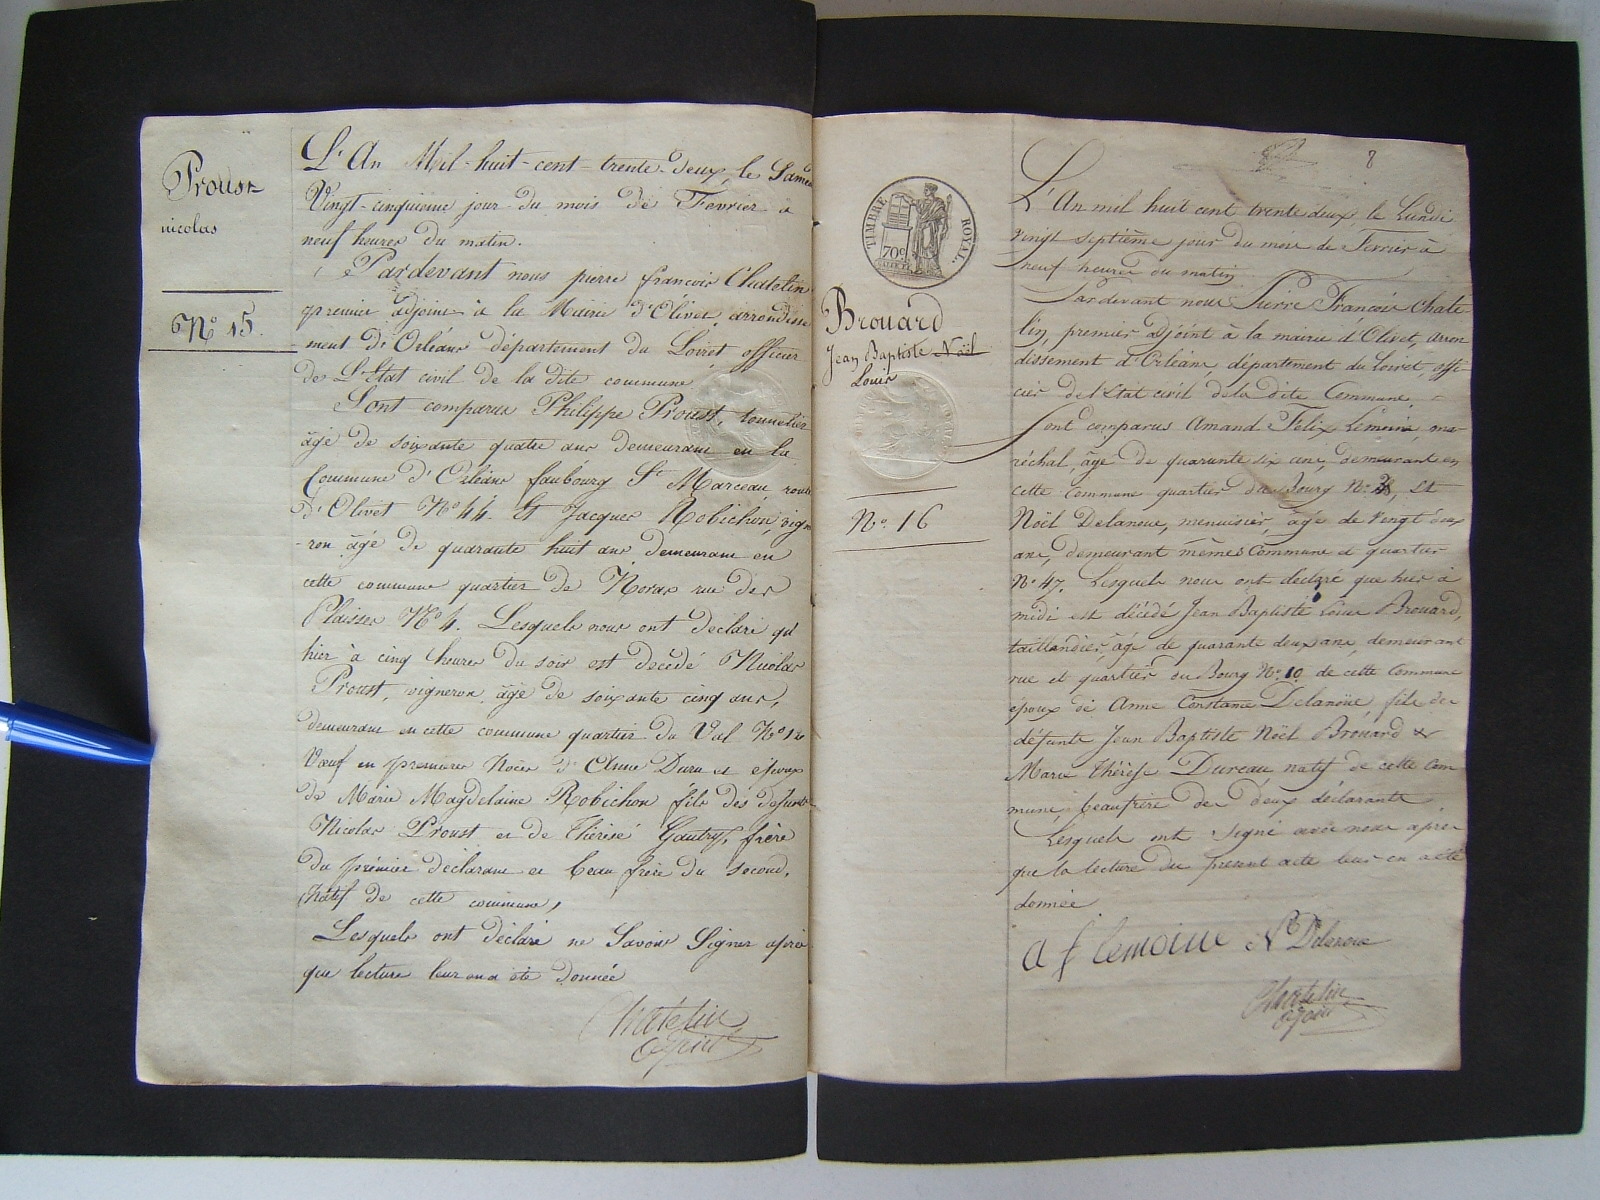 Proust
nicolas
N° 15.
L'An Mil-huit-cent-trente-deux, le Same
Vingt-cinquieme jour du mois de Fevrier à
neuf heures du matin.
Pardevant nous pierre françois Chatelin
premier adjoint à la Mairie d'Olivet, arrondisse
ment d'Orléans département du Loiret officier
de L'Etat civil de la dite commune
Sont comparus Philippe Proust, tonnelier
âgé de soixante quatre ans demeurant en la
Commune d'Orléans faubourg St Marceau route
d'Olivet N° 44. Et Jacques Robichon, vigne
-ron âgé de quarante huit ans demeurant en
cette commune quartier de Noras rue des
Plaisses N° 4. Lesquels nous ont déclaré qu'
hier à cinq heures du soir est decédé Nicolas
Proust, vigneron âgé de soixante cinq ans,
demeurant en cette commune quartier du Val N° 120
Veuf en premieres Noces d'Anne Duru et epoux
de Marie Magdelaine Robichon fils des defunts
Nicolas Proust et de Thérèse Gautry, frère
du premier déclarant et beau frère du second,
Natif de cette commune,
Lesquels ont déclaré ne Savoir Signer après
que lecture leur en a été donnée
Chatelin
adjoint
8
TIMBRE ROYAL.
70c
Brouard
Jean Baptiste Noël
Louis
N°. 16
L'An mil huit cent trente deux, le Lundi
vingt septième jour du mois de Fevrier à
neuf heures du matin
Pardevant nous Pierre François Chate
lin, premier adjoint à la mairie d'Olivet, arron
dissement d'Orléans, département du Loiret, offi
cier de l'Etat civil de la dite Commune.
Sont comparus Amand Felix Lemoine, ma
réchal, âgé de quarante six ans, demeurant en
cette commune quartier du Bourg N°. et
Noël Delanoue, menuisier, âgé de vingt deux
ans, demeurant mêmes Commune et quartier
N° 47. Lesquels nous ont declaré que hier à
midi est décédé Jean Baptiste Louis Brouard,
taillandier, âgé de quarante deux ans, demeurant
rue et quartier du Bourg N°. 10 de cette Commune
époux de Anne Constance Delanoüe, fils de
défunts Jean Baptiste Noël Brouard &
Marie Thérèse Dureau natif de cette Com
mune, beaufrère des deux déclarants
Lesquels ont Signé avec nous après
que la lecture du présent acte leur en a été
donnée
a f lemoine N Delanoue
Chatelin
adjoint